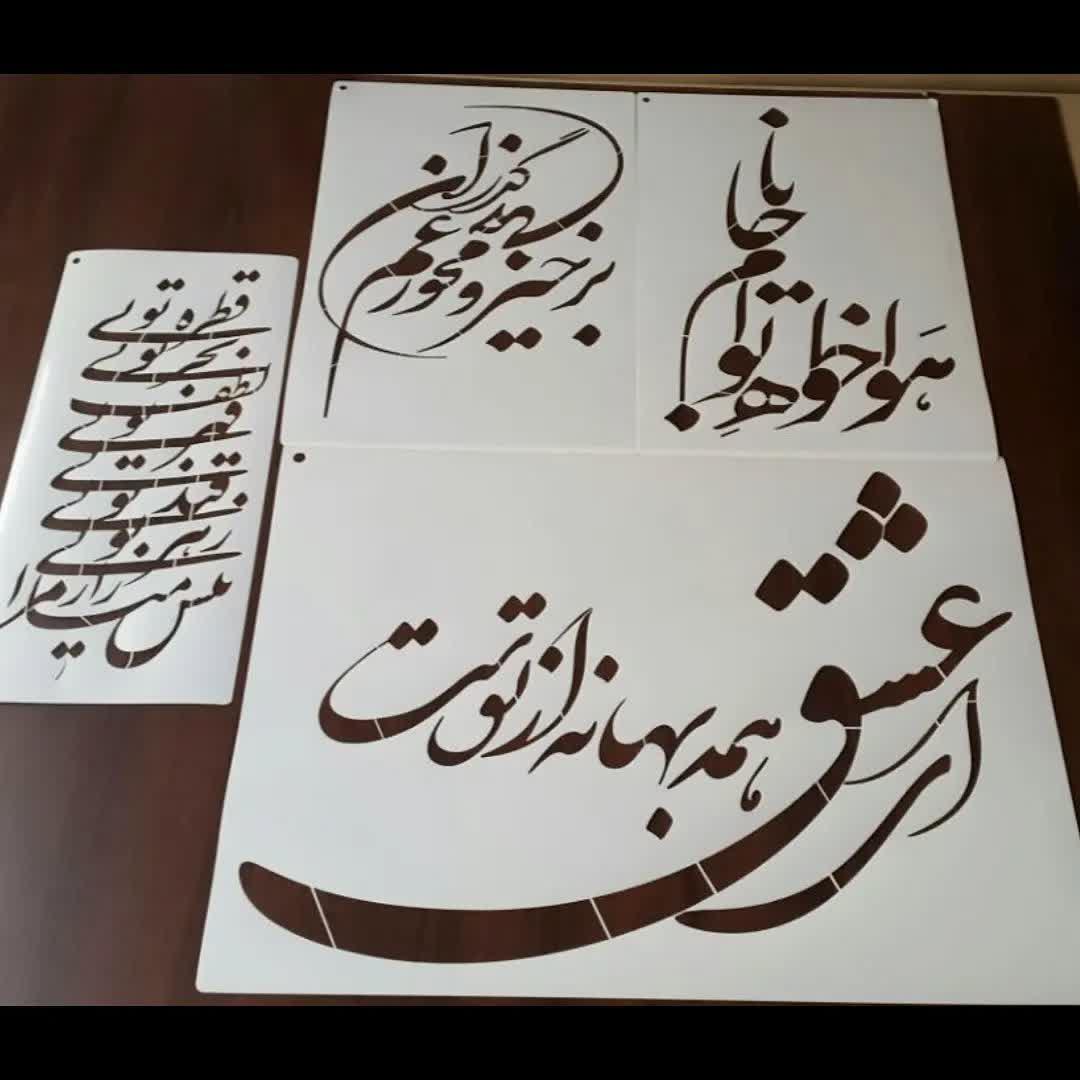 برخیز و مخور غم جهان گذران
هواخواه توام جانا
قطره تویی
بحر تویی
لطف تویی
قهر تویی
قند تویی
زهر تویی
بیش میازار مرا
ای عشق همه بهانه از توست